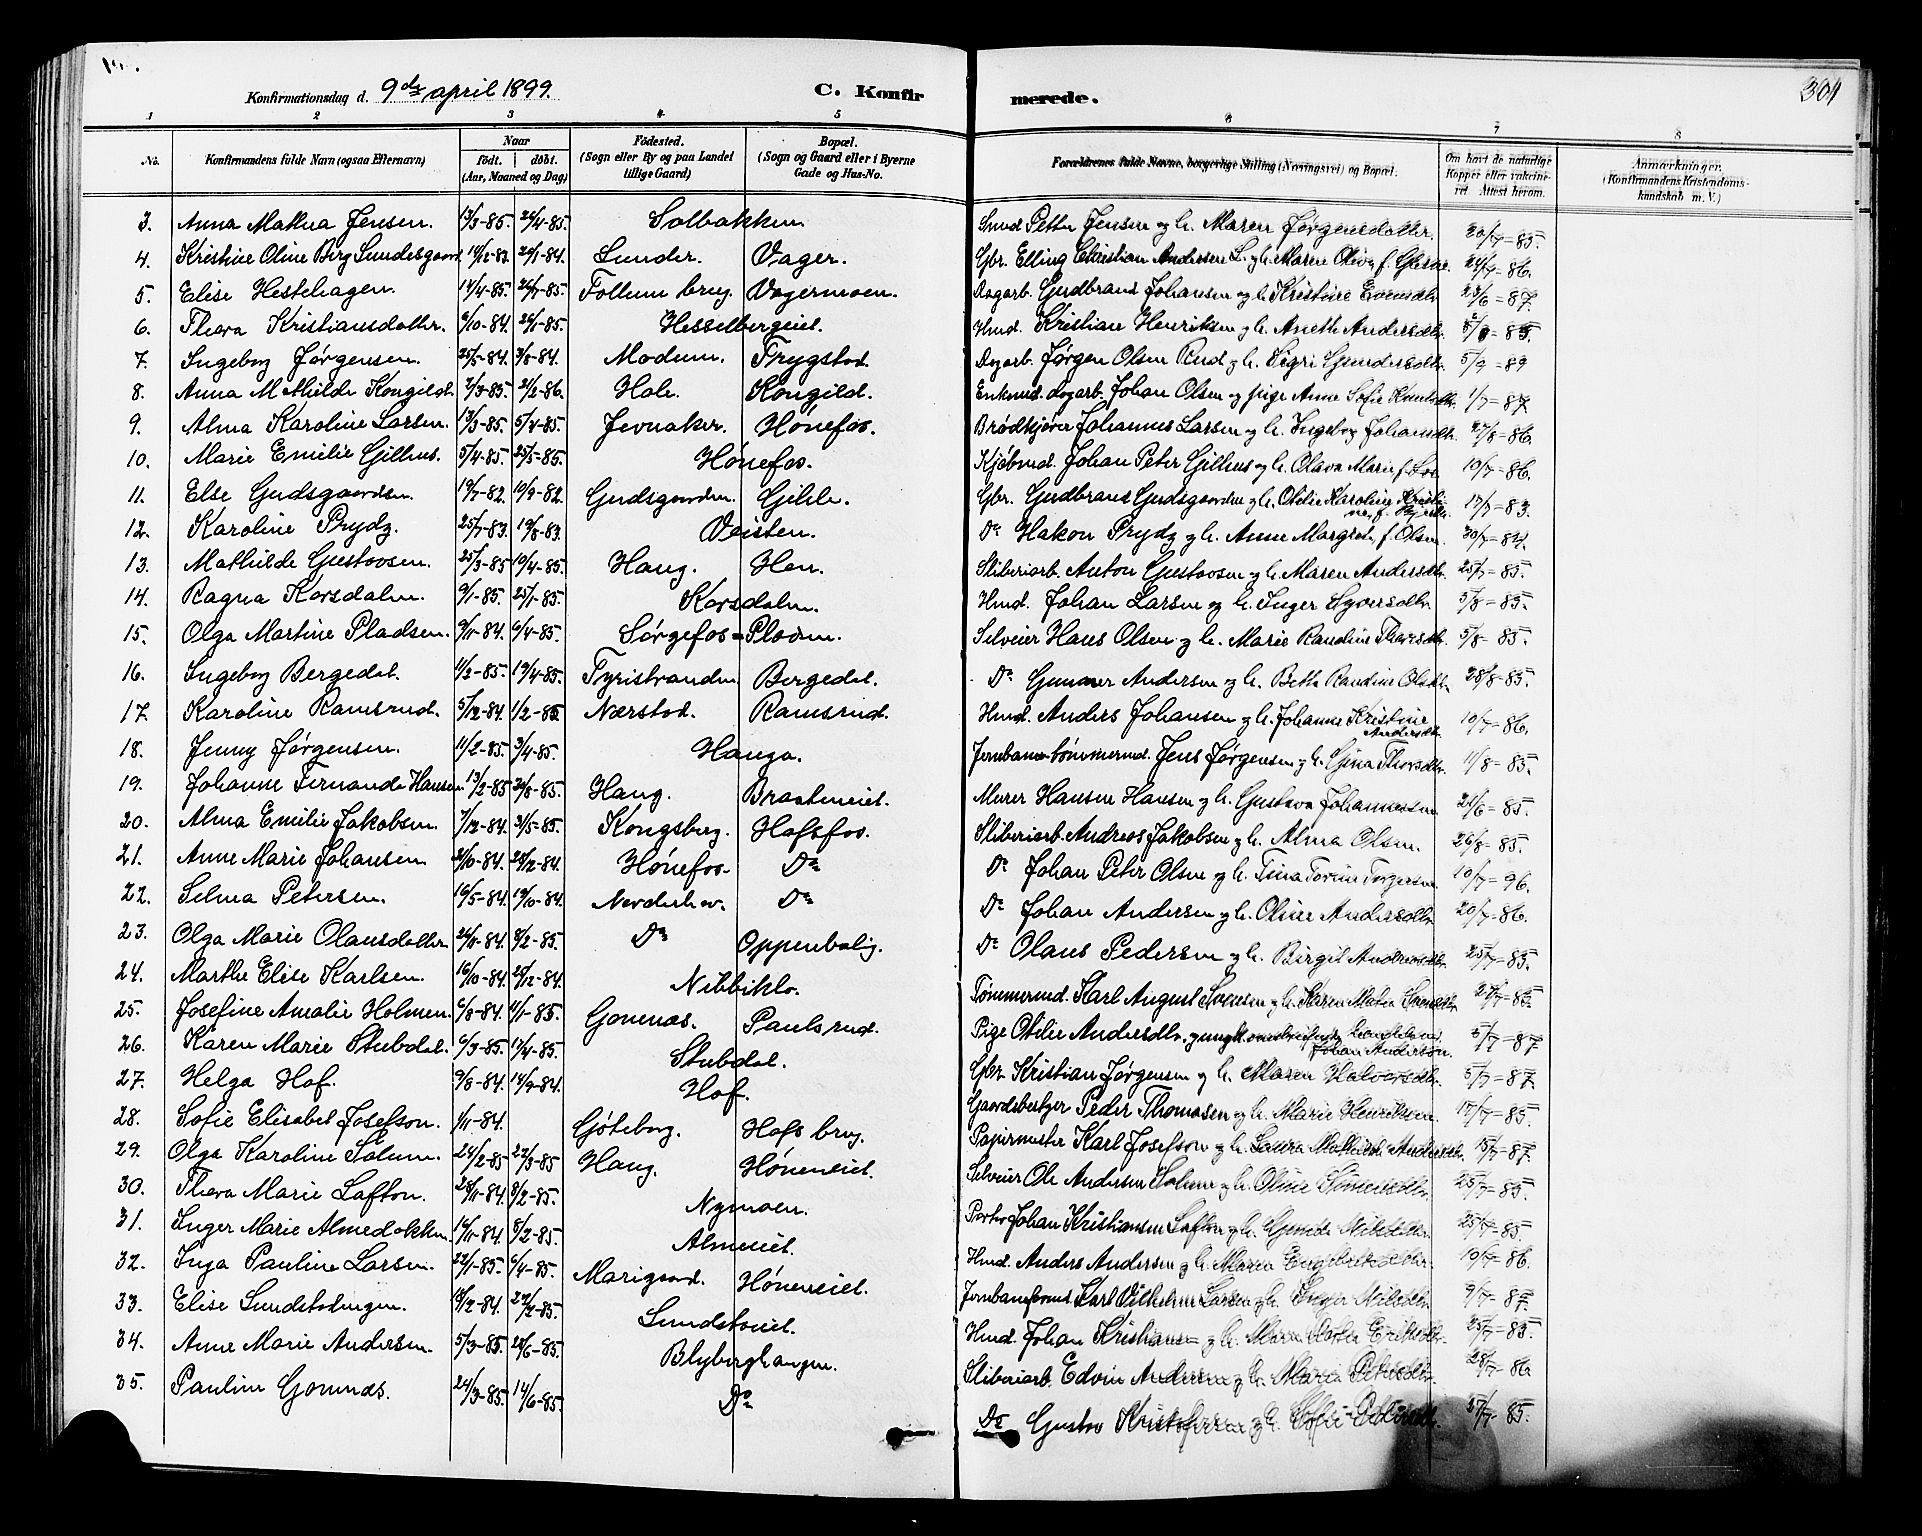 304
Konfirmationsdag d. 9de april 1899. C. Konfirmerede.
1 2 3 4 5 6 7 8
No. Konfirmandens fulde Navn (ogsaa Efternavn) Naar født. døbt. (Aar, Maaned og Dag) Fødested. (Sogn eller By og paa Landet tillige Gaard) Bopæl. (Sogn og Gaard eller i Byerne Gade og Hus-No. Forældrenes fulde Navne, borgerlige Stilling (Næringsvei) og Bopæl. Om havt de naturlige Kopper eller vakcineret. Attest herom. Anmærkninger. (Konfirmandens Kristendomskundskab m. V.)
3. Anna Mathea Jensen. 13/3-85. 26/4-85. Solbakken Smed Petter Jensen og h. Maren Jørgensdatter. 30/7=85.
4. Kristine Oline Berg Sundesgaard 14/12-83. 20/1-84. Sunder. Vager. Gbr. Elling Christian Andersen S. og h. Maren Olive f. 24/7=86.
5. Elise Hestehagen. 14/4-85. 26/7-85. Follum brug. Vagermoen. Dagarb. Gudbrand Johansen og h. Kristine Evensdtr. 23/6=87.
6. Thora Kristiansdatter. 6/10-84. 24/1-85. Hesselbergeiet. Hmd. Kristian Henriksen og h. Anethe Andersdtr.
7. Ingeborg Jørgensen. 25/5-84. 3/8-84. Modum. Trygstad. Dagarb. Jørgen Olsen Rud og h. Sigri Gundersdtr. 5/9=89
8. Anna Mathilde Kongild. 2/3-85. 21/2-86. Hole. Kongild. Enkmd. dagarb. Johan Olsen og pige Anne Sofie Knudsdtr. 1/7=87
9. Alma Karoline Larsen. 13/3-85. 5/4-85. Jevnaker. Hønefos. Brødkjører Johannes Larsen og h. Ingeborg Johansdtr. 27/8=86.
10. Marie Emilie Gilhus. 5/4-85. 25/5-85. Hønefos. Kjøbmd. Johan Peter Gilhus og h. Olava Marie f. 10/7=86.
11. Else Gudsgaarden. 19/7-82. 10/9-82. Gudsgaarden. Gihle. Gbr. Gudbrand Gudsgaarden og h. Otilie Karoline Kristine, f. 17/7=83.
12. Karoline Prydz. 25/7-83. 19/8-83. Veisten. Do Hakon Prydz og h. Anne Margrete f. Olsen. 30/7=84.
13. Mathilde Gustavsen. 25/3-85 10/4-85. Haug. Hen. Sliberiarb. Anton Gustavsen og h. Maren Andersdtr. 25/7=85.
14. Ragna Korsdalen. 9/1-85. 25/1-85. Korsdalen. Hmd. Johan Larsen og h. Inger Syversdtr. 5/8=85.
15. Olga Martine Pladsen. 9/11-84. 6/4-85. Sørgefos=Pladsen. Selveier Hans Olsen og h. Marie Randine Thoresdtr. 5/8=85.
16. Ingeborg Bergedal. 11/2-85. 19/4-85. Tyristranden Bergedal. Do Gunner Andersen og h. Berthe Randine Olsdtr. 28/8-85.
17. Karoline Ramsrud. 5/12-84. 1/2-85 Nærstad. Ramsrud. Hmd. Anders Johansen og h. Johanne Kristine Andersdtr. 10/7=86.
18. Jenny Jørgensen. 11/2-85. 3/4-85. Hauga. Jernbanetømmermd. Jens Jørgensen og h. Gina Thorsdtr. 11/8=85.
19. Johanne Fernande Hansen 13/2-85 30/8-85. Haug. Braateneiet. Murer Hansen Hansen og h. Gustava Johannesen. 24/6=85.
20. Alma Emilie Jakobsen. 7/12-84. 31/5-85. Kongsberg. Hofsfos. Sliberiarb. Andreas Jakobsen og h. Alma Olsen. 26/8-85.
21. Anne Marie Johansen 21/10-84. 28/12-84. Hønefos. Do Do Johan Peter Olsen og h. Tina Torine Torgersen 10/7=96.
22. Selma Petersen. 16/5-84. 19/10-84. Norderhov. Do Do Johan Andersen og h. Oline Andersdtr. 20/7=86.
23. Olga Marie Olausdatter 24/11-84. 8/2-85. Do Oppenbølig. Do Olaus Pedersen og h. Birgit Andreasdtr. 25/7=85.
24. Marthe Elise Karlsen. 16/10-84. 28/12-84. Nibbiklv. Tømmermd. Karl August Svensen og h. Karen Mathea Svensdtr.
25. Josefine Amalie Holmen 6/8-84. 11/1-85. Gomnæs. Paulsrud. Pige Otilie Andersdtr. og ungk. omstreifende handelsmd. Johan Anderson. 5/7=87
26. Karen Marie Stubdal. 6/3-85. 17/4-85. Stubdal. Gbr. Kristian Jørgensen og h. Maren Halvorsdtr. 5/7=87.
27. Helga Hof. 9/8-84. 14/9-84. Hof. Gaardsbestyrer Peder Thomasen og h. Marie Henriksen. 17/7=85.
28. Sofie Elisabet Josefson. 1/11-84. Gøteborg. Hofs brug. Papirmester Karl Josefson og h. Laura Mathilde Andersdtr. 15/7=87.
29. Olga Karoline Solum. 24/2-85 22/3-85 Haug. Høneneiet. Selveier Ole Andersen Solum og h. Oline Simensdtr. 25/7=85.
30. Thora Marie Lafton. 28/11-84 8/2-85. Nymoen. Portør Johan Kristiansen Lafton og h. Gunda Nilsdtr. 25/7=85
31. Inger Marie Almedokken 14/11-84. 8/2-85. Almeiet. Hmd. Anders Andersen og h. Maren Engebretsdtr. 19/7=86.
32. Inga Pauline Larsen. 22/1-85. 6/4-85. Marigaard. Høneneiet. Jernbaneformd Karl Vilhelm Larsen og h. Inger Nilsdtr. 9/7=87.
33. Elise Sundstadengen. 18/12-84. 22/2-85. Sundstøeiet. Hmd. Johan Kristiansen og h. Maren Eriksdtr. 25/7=85.
34. Anne Marie Andersen. 5/3-85. 28/6-85. Blyberghaugen. Sliberiarb. Edvin Andersen og h. Maria Petersdtr. 28/7=86
35. Pauline Gomnæs. 24/3-85. 14/6-85. Do Do Gustav Kristofersen og h. Sofie 27/7-85.